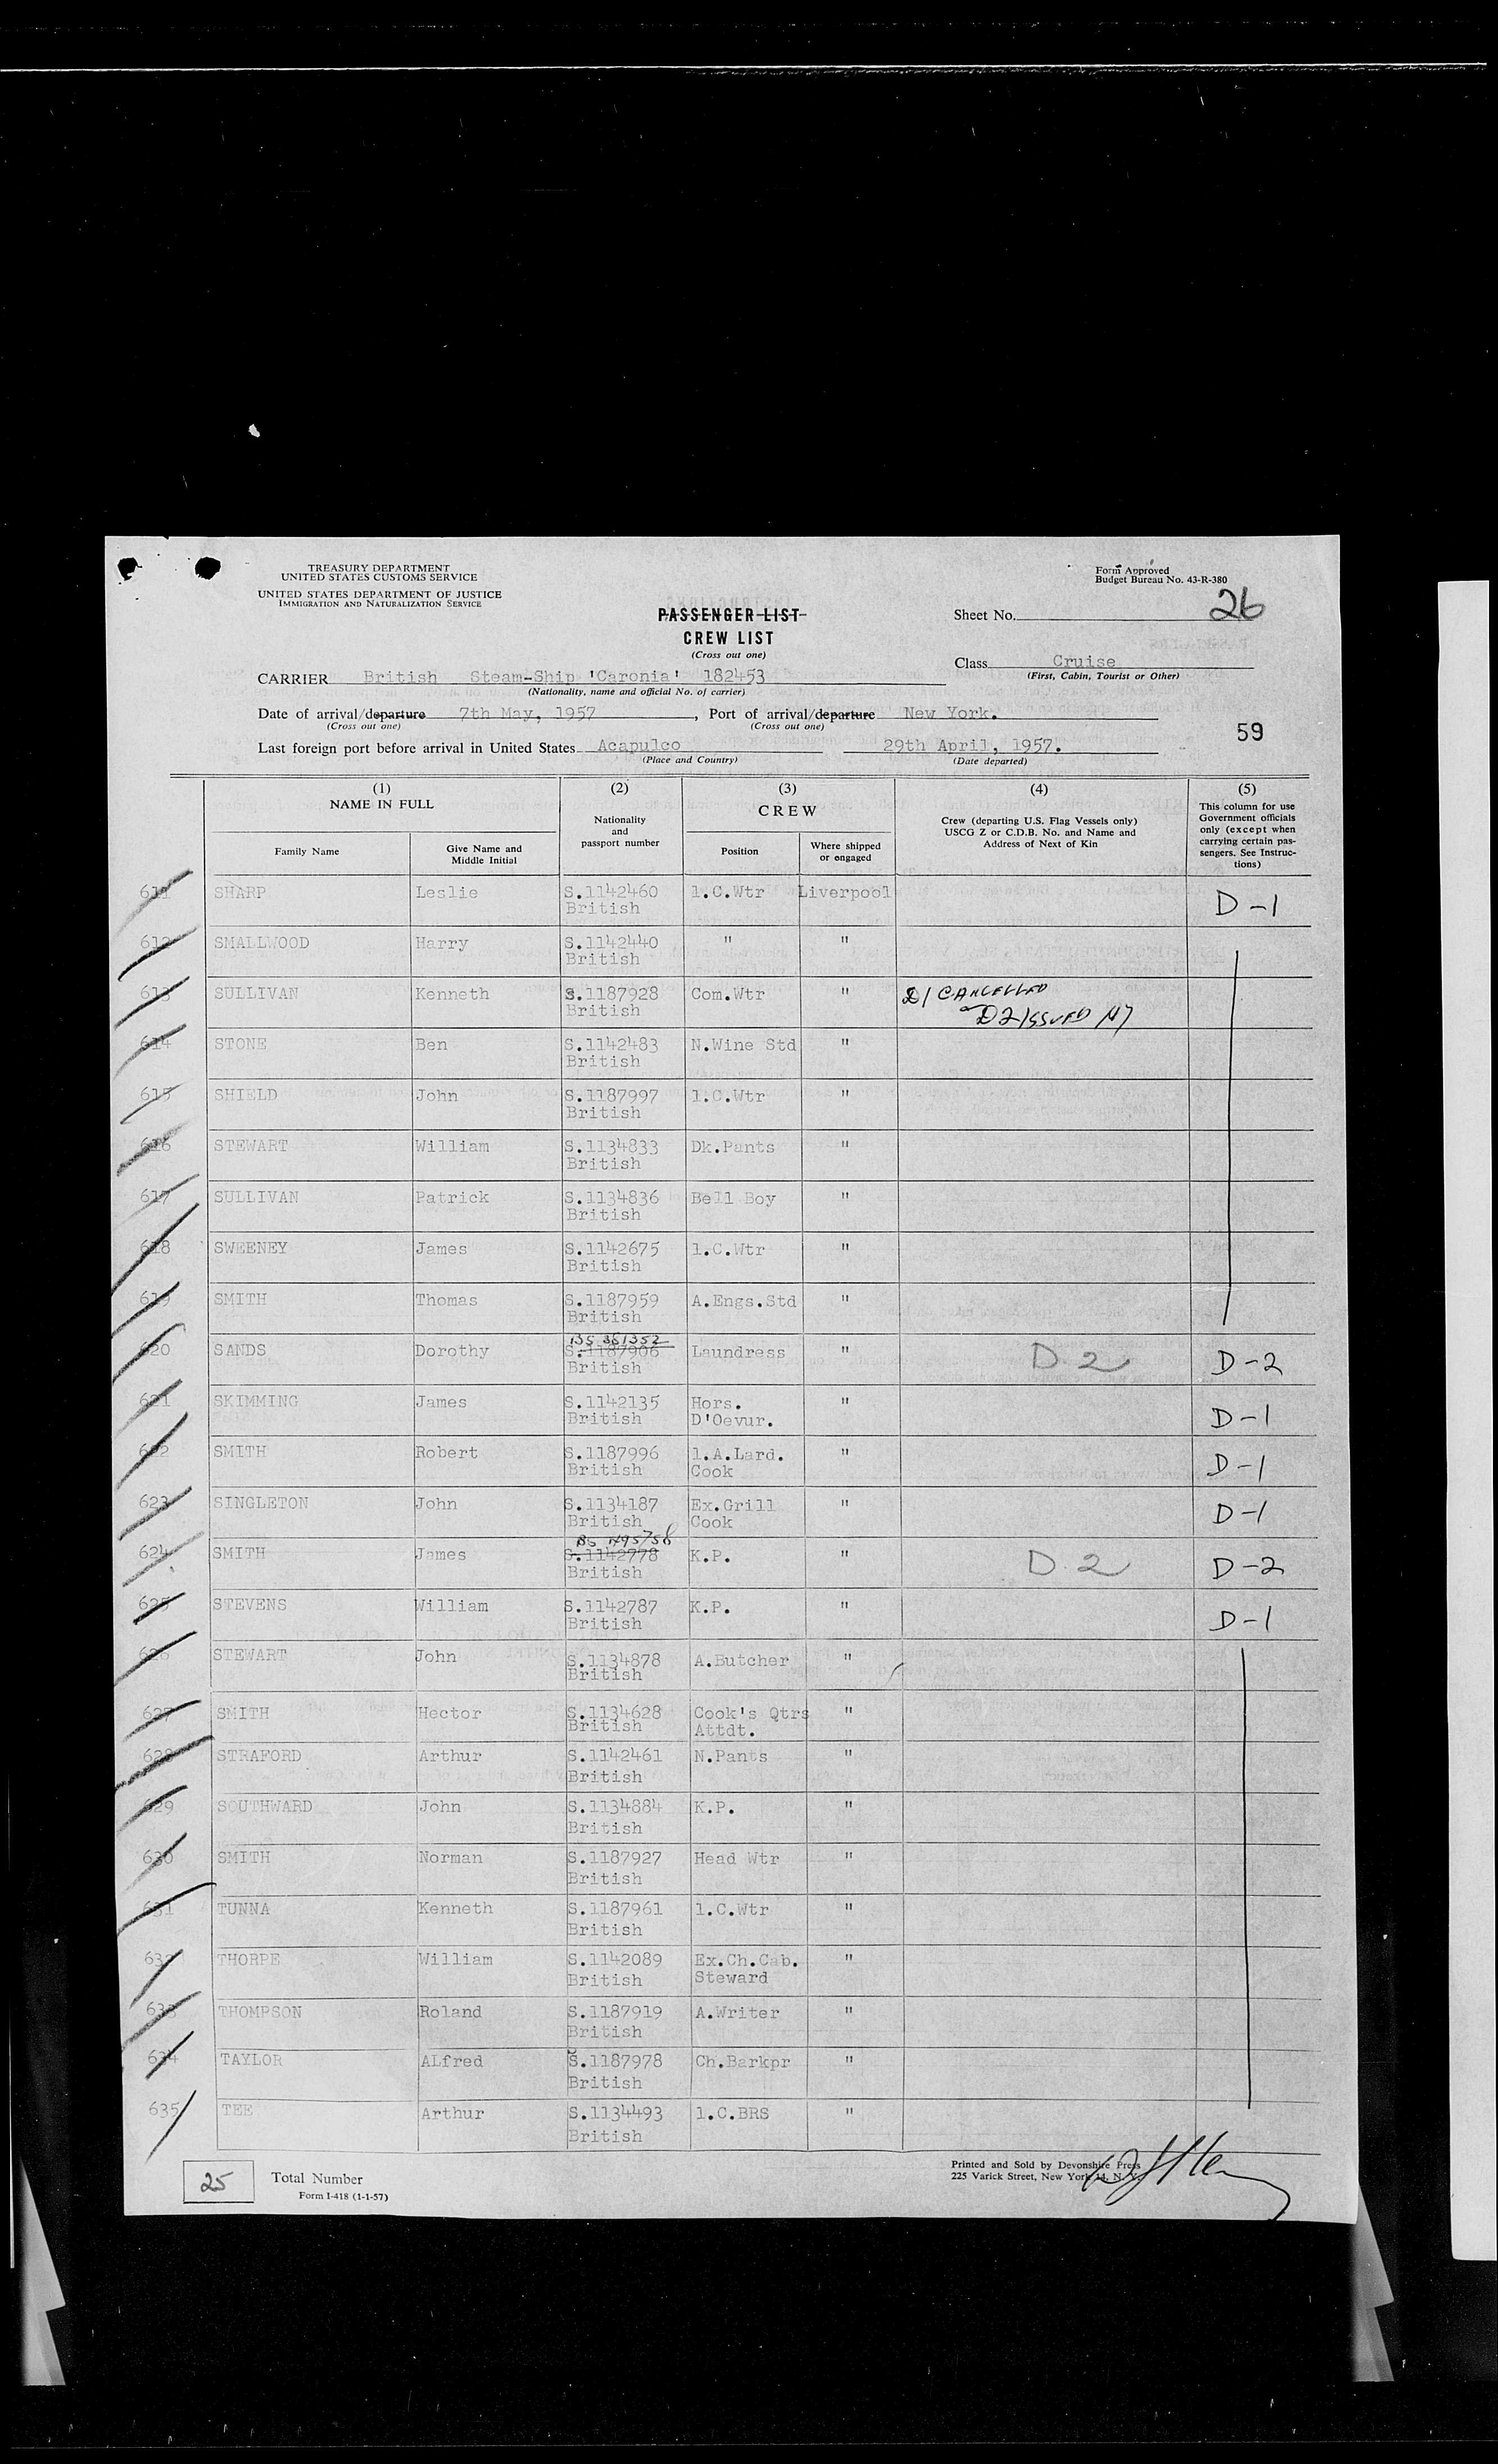 TREASURY DEPARTMENT
UNITED STATES CUSTOMS SERVICE
UNITED STATES DEPARTMENT OF JUSTICE
IMMIGRATION AND NATURALIZATION SERVICE
Form Approved
Budget Bureau No. 43-R-380
PASSENGER LIST
CREW LIST
(Cross out one)
Sheet No. 26
Class Cruise
(First, Cabin, Tourist or Other)
CARRIER British Steam-Ship 'Caronia' 182453
(Nationality, name and official No. of carrier)
Date of arrival/departure 7th May, 1957, Port of arrival/departure New York.
(Cross out one) (Cross out one)
59
Last foreign port before arrival in United States Acapulco 29th April, 1957.
(Place and Country) (Date departed)
(1) (2) (3) (4) (5)
NAME IN FULL
Family Name
Give Name and
Middle Initial
Nationality
and
passport number
CREW
Position
Where shipped
or engaged
Crew (departing U.S. Flag Vessels only)
USCG Z or C.D.B. No. and Name and
Address of Next of Kin
This column for use
Government officials
only (except when
carrying certain pas-
sengers. See Instruc-
tions)
611 SHARP Leslie S.1142460 1.C.Wtr Liverpool D-1
British
612 SMALLWOOD Harry S.1142440 " "
British
613 SULLIVAN Kenneth S.1187928 Com.Wtr " D1 CANCELLED
British D2 ISSUED NY
614 STONE Ben S.1142483 N.Wine Std "
British
615 SHIELD John S.1187997 1.C.Wtr "
British
616 STEWART William S.1134833 Dk.Pants "
British
617 SULLIVAN Patrick S.1134836 Bell Boy "
British
618 SWEENEY James S.1142675 1.C.Wtr "
British
619 SMITH Thomas S.1187959 A.Engs.Std "
British
BS 381352
620 SANDS Dorothy S.1187906 Laundress " D.2 D-2
British
621 SKIMMING James S.1142135 Hors. " D-1
British D'Oevur.
622 SMITH Robert S.1187996 1.A.Lard. " D-1
British Cook
623 SINGLETON John S.1134187 Ex.Grill " D-1
British Cook
BS 495758
624 SMITH James S.1142778 K.P. " D.2 D-2
British
625 STEVENS William S.1142787 K.P. " D-1
British
626 STEWART John S.1134878 A.Butcher "
British
627 SMITH Hector S.1134628 Cook's Qtrs "
British Attdt.
628 STRAFORD Arthur S.1142461 N.Pants "
British
629 SOUTHWARD John S.1134884 K.P. "
British
630 SMITH Norman S.1187927 Head Wtr "
British
631 TUNNA Kenneth S.1187961 1.C.Wtr "
British
632 THORPE William S.1142089 Ex.Ch.Cab. "
British Steward
633 THOMPSON Roland S.1187919 A.Writer "
British
634 TAYLOR ALfred S.1187978 Ch.Barkpr "
British
635 TEE Arthur S.1134493 1.C.BRS "
British
25 Total Number
Form I-418 (1-1-57)
Printed and Sold by Devonshire Press
225 Varick Street, New York 14, N. Y.